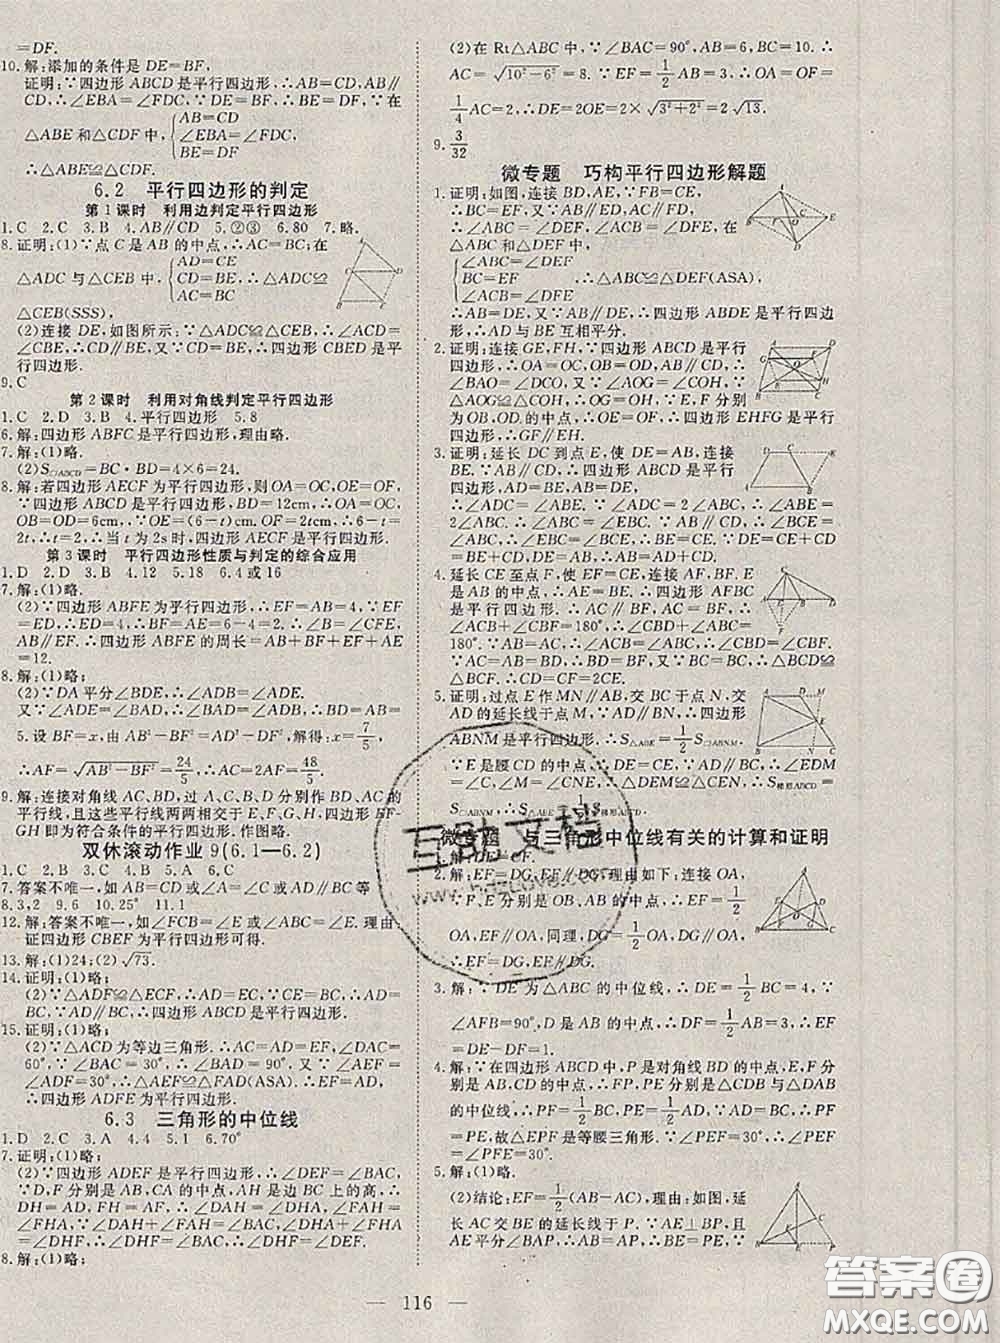 =DF.
10.解:添加的条件是DE=BF,
证明:∵四边形ABCD是平行四边形,∴AB=CD,AB∥
CD,∴∠EBA=∠FDC,∵DE=BF,∴BE=DF,∵在
△ABE和△CDF中,{AB=CD
∠EBA=∠FDC,
BE=DF
∴△ABE≌△CDF.
6.2 平行四边形的判定
第1课时 利用边判定平行四边形
1.C 2.D 3.B 4.AB∥CD 5.②③ 6.80 7.略.
8.证明:(1)∵点C是AB的中点,∴AC=BC;在
△ADC与△CEB中,{AD=CE
CD=BE,∴△ADC≌
AC=BC
△CEB(SSS),
(2)连接DE,如图所示:∵△ADC≌△CEB,∴∠ACD=
∠CBE,∴CD∥BE,又∵CD=BE,∴四边形CBED是平
行四边形.
9.C
第2课时 利用对角线判定平行四边形
1.C 2.D 3.B 4.平行四边形 5.8
6.解:四边形ABFC是平行四边形,理由略.
7.解:(1)略.
(2)S□ABCD=BC·BD=4×6=24.
8.解:若四边形AECF为平行四边形,则OA=OC,OE=OF,
∵四边形ABCD是平行四边形,BD=12cm,∴OA=OC,
OB=OD=6cm,∵OE=(6-t)cm,OF=2tcm,∴6-t=
2t,∴t=2,∴当t为2s时,四边形AECF是平行四边形.
第3课时 平行四边形性质与判定的综合应用
1.D 2.D 3.B 4.12 5.18 6.4或16
7.解:(1)略.
(2)∵四边形ABFE为平行四边形,∴EF=AB=4,∵EF=
ED,∴ED=4,∴AE=BF=6-4=2,∴∠B=∠CFE,
AB=EF,∴四边形ABFE的周长=AB+BF+EF+AE
=12.
8.解:(1)略;
(2)∵DA平分∠BDE,∴∠ADE=∠BAD.
又∵∠ADE=∠BAD,∴∠BAD=∠BDA,∴BD=AB=
5.设BF=x,由AB²-BF²=AD²-DF²,解得:x=7/5,
∴AF=√(AB²-BF²)=24/5,∴AC=2AF=48/5.
9.解:连接对角线AC、BD,过A、C、B、D分别作BD、AC的
平行线,且这些平行线两两相交于E、F、G、H,四边形EF-
GH即为符合条件的平行四边形.作图略.
双休滚动作业9(6.1—6.2)
1.C 2.B 3.C 4.B 5.A 6.C
7.答案不唯一,如AB=CD或∠A=∠C或AD∥BC等
8.3,2 9.6 10.25° 11.1
12.解:答案不唯一,如∠FCB=∠E或AB=AE等,理由:
证四边形CBEF为平行四边形可得.
13.解:(1)24;(2)√73.
14.证明:(1)略;
(2)∵△ADF≌△ECF,∴AD=EC,∵CE=BC,∴AD=
BC,AD∥BC,∴四边形ABCD是平行四边形.
15.证明:(1)略;
(2)∵△ACD为等边三角形,∴EF=AC=AD,∠DAC=
60°,∵∠BAC=30°,∴∠DAF=90°,∴∠AEF=
∠ADF=30°,∴△AEF≌△FAD(ASA).∴四边形ADFE
是平行四边形.
6.3 三角形的中位线
1.D 2.C 3.A 4.4 5.1 6.70°
7.证明:(1)略;
(2)∵四边形ADEF是平行四边形,∴∠DEF=∠BAC,
∵D、F分别是AB、CA的中点,AH是边BC上的高,∴
DH=AD,FH=AF,∴∠DAH=∠DHA,∠FAH=
∠FHA,∵∠DAH+∠FAH=∠BAC,∠DHA+∠FHA
=∠DHF,∴∠DHF=∠BAC,∴∠DHF=∠DEF.
8.解:(1)略;
(2)在Rt△ABC中,∵∠BAC=90°,AB=6,BC=10.∴
AC=√(10²-6²)=8.∵EF=1/2AB=3,∴OA=OF=
1/4AC=2,∴DE=2OE=2×√(3²+2²)=2√13.
9.3/32
微专题 巧构平行四边形解题
1.证明:如图,连接BD,AE,∵FB=CE,
∴BC=EF,又∵AB∥ED,AC∥FD,
∴∠ABC=∠DEF,∠ACB=∠DFE,在
△ABC和△DEF中,
{∠ABC=∠DEF
BC=EF,∴△ABC≌△DEF(ASA),
∠ACB=∠DFE
∴AB=DE,又∵AB∥DE,∴四边形ABDE是平行四边
形,∴AD与BE互相平分.
2.证明:连接GE,FH,∵四边形ABCD是平行
四边形,∴OA=OC,OB=OD,AB∥CD,∴
∠BAO=∠DCO,又∵∠AOG=∠COH,∴
△AOG≌△COH,∴OG=OH,又∵E、F分别
为OB、OD,的中点,∴OE=OF,∴四边形EHFG是平行
四边形,∴GF∥EH.
3.证明:延长DC到点E,使DE=AB,连接
BE.∵AB∥DE,AB=DE,∴四边形
ABED是平行四边形,∴AD=BE,∠A=
∠E,∵∠ADC=2∠ABC,∴∠ADC=2∠ABE,∴∠ABE
=2∠ABC.∴∠ABC=∠EBC,∵AB∥DE,∴∠ABC=
∠BCE,∴∠EBC=∠BCE,∴CE=BE=AD,∵CD+CE
=DE,∴BE+CD=AB,∴AD+CD=AB.
4.延长CE至点F,使EF=CE,连接AF、BF.E
是AB的中点,∴AE=BE.∴四边形AFBC
是平行四边形.∴AC∥BF,AC=BF,∴∠ACB
+∠CBF=180°,∴∠ABC+∠CBD=
180°.∵AB=AC,∴∠ACB=∠ABC,∴∠CBD=∠CBF.
∵BD=AB,∴BD=BF,又∵CB=CB,∴△BCD≌
△BCF.∴CD=CF=2CE.
5.证明:过点E作MN∥AB,交BC于点N,交
AD的延长线于点M,∵AD∥BN,∴四边形
ABNM是平行四边形,∴S△ABE=1/2S□ABNM,
∵E是腰CD的中点,∴DE=CE,∵∠EDM
=∠C,∠M=∠CNE,∴△DEM≌△CEN,∴S梯形ABCD=
S□ABNM,∴S△ABE=1/2S梯形ABCD
微专题 与三角形中位线有关的计算和证明
1.解:DE=CF.
2.解:EF=DG,EF∥DG,理由如下:连接OA,
∵F、E分别是OB、AB的中点,∴EF=1/2
OA,EF∥OA,同理,DG=1/2OA,DG∥OA,
∴EF=DG,EF∥DG.
3.解:∵DE为△ABC的中位线,∴DE=1/2BC=4,∵
∠AFB=90°,D是AB的中点,∴DF=1/2AB=3,∴EF
=DE-DF=1.
4.解:∵在四边形ABCD中,P是对角线BD的中点,E、F分
别是AB、CD的中点,∴FP、PE分别是△CDB与△DAB
的中位线,∴PF=1/2BC,PE=1/2AD,∵AD=BC,∴PF=
PE,故△EFP是等腰三角形.∵∠PEF=30°,∴∠PEF=
∠PFE=30°.
5.解:(1)略;
(2)结论:EF=1/2(AB-AC),理由:如图,延
长AC交BE的延长线于P.∵AE⊥BP,且
AE平分∠BAC,∴AB=AP,∴BE=PE,
116
互助文档
www.hdzlove.com
答案圈
MXQE.COM